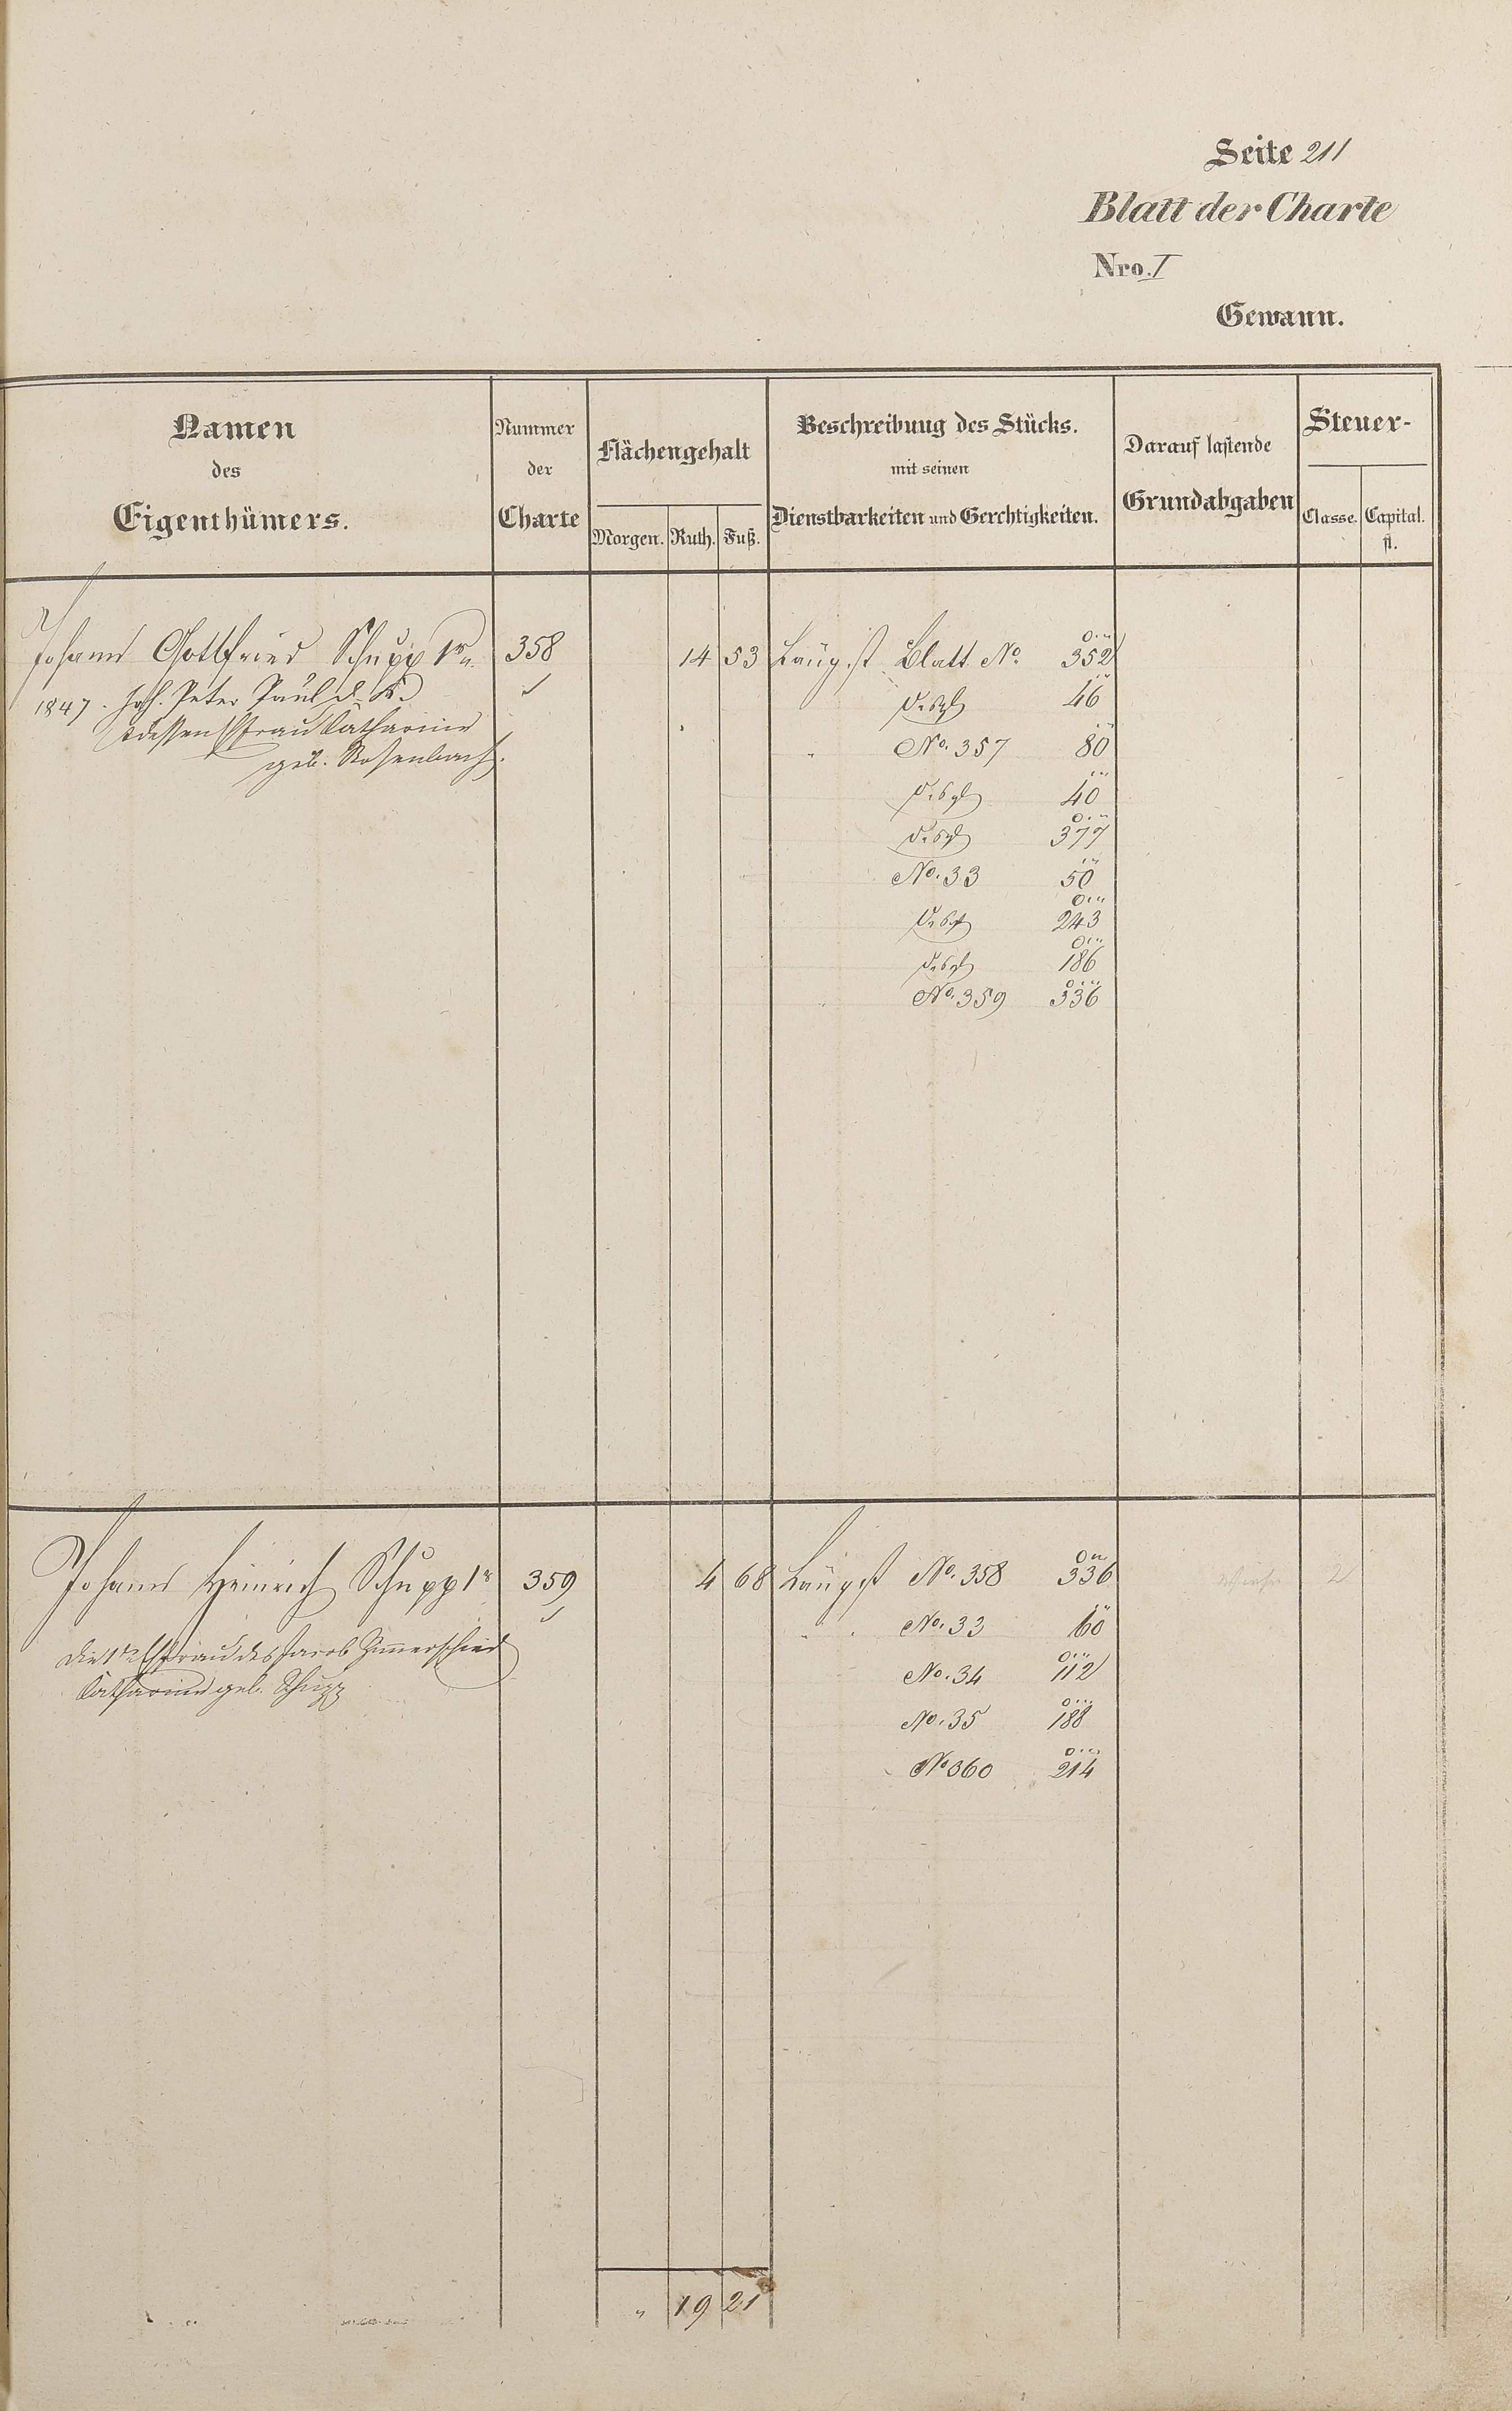 Seite 211
Blatt der Charte
Nro. I
Gewann.
Namen des Eigenthümers.
Nummer der Charte
Flächengehalt
Morgen. Ruth. Fuß.
Beschreibung des Stücks. mit seinen Dienstbarkeiten und Gerchtigkeiten.
Darauf lastende Grundabgaben
Steuer-
Classe. Capital. fl.
Johann Gottfried Schupp 1r 358 14 53 Längst Blatt No. 352
1847. Joh. Peter Paul
dessen Ehfrau Catharine
geb. Rosenbach.
dsgl 46
No. 357 80
dsgl 40
dsgl 377
No. 33 50
dsgl 243
dsgl 186
No. 359 336
Johann Heinrich Schupp 1r 359 4 68 Längst No. 358 336
die 1te Ehfrau des Jacob Zimmerschied
Catharine geb. Schupp
No. 33 60
No. 34 112
No. 35 188
No 360 214
2
" 19 21